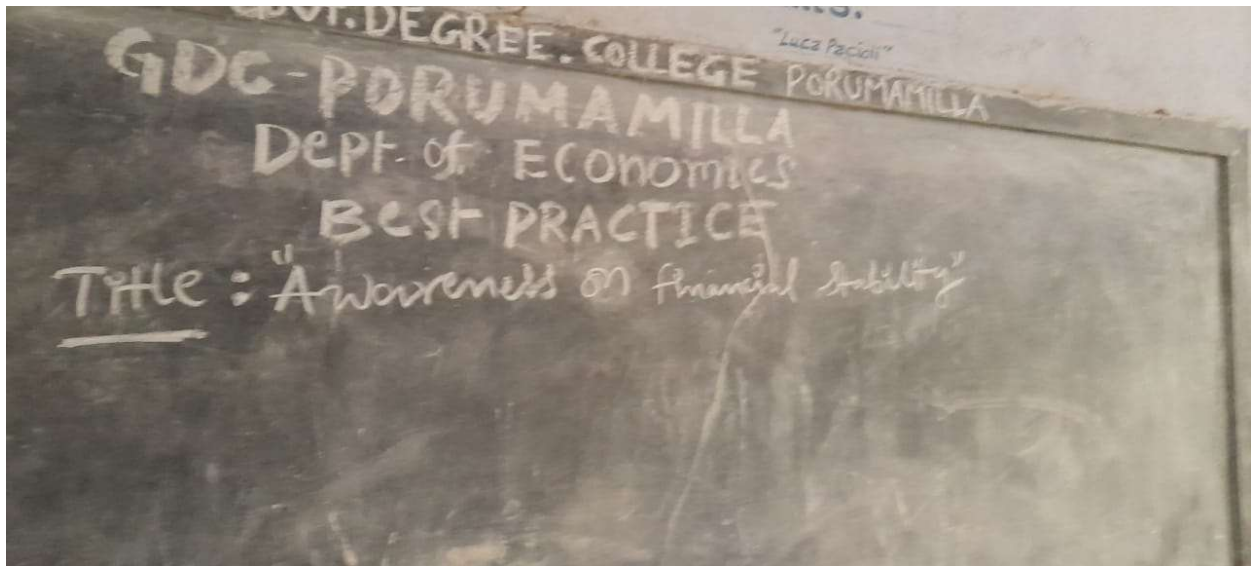 "Luca Pacioli"
GOVT. DEGREE. COLLEGE PORUMAMILLA
GDC-PORUMAMILLA
Dept. of Economics
BEST PRACTICE
Title : "Awareness on financial stability"